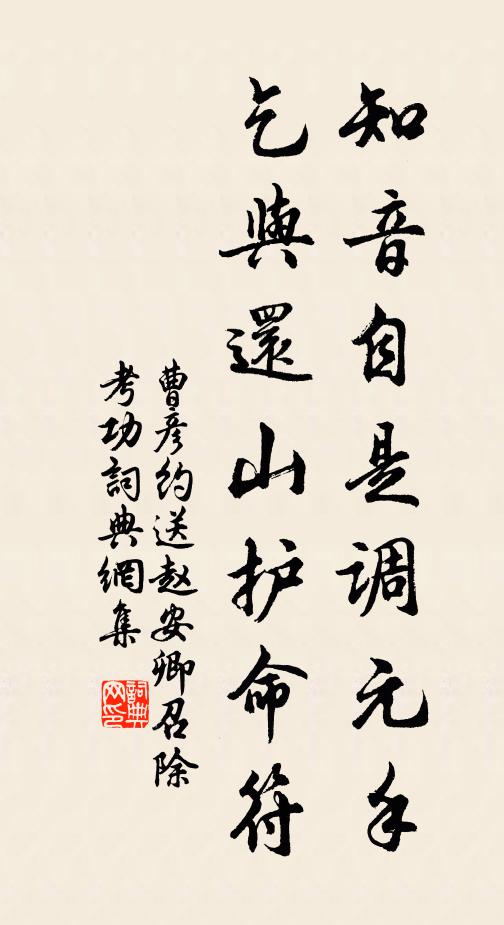 知音自是调元手
乞與還山护命符
曹彦约送赵安卿召除
考功詞典網集
詞典网印